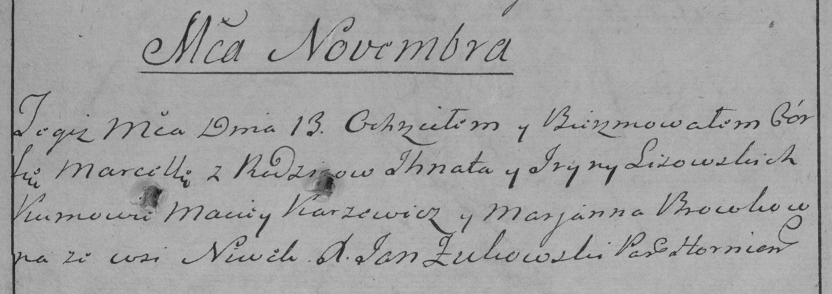 Mča Novembra
Tegiż Mča Dnia 13. Ochrzciłem y Bierzmowałem Cór
kę Marcellę z Rodzicow Ihnata y Iryny Lisowskich
Kumowie Maciey Karzewicz y Marjanna Browkow
na ze wsi Niwek. X. Jan Żukowski Par